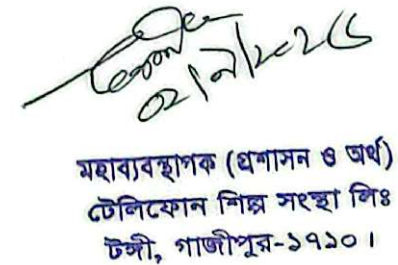 ০২/০৯/২০২৪
মহাব্যবস্থাপক (প্রশাসন ও অর্থ)
টেলিফোন শিল্প সংস্থা লিঃ
টঙ্গী, গাজীপুর-১৭১০।